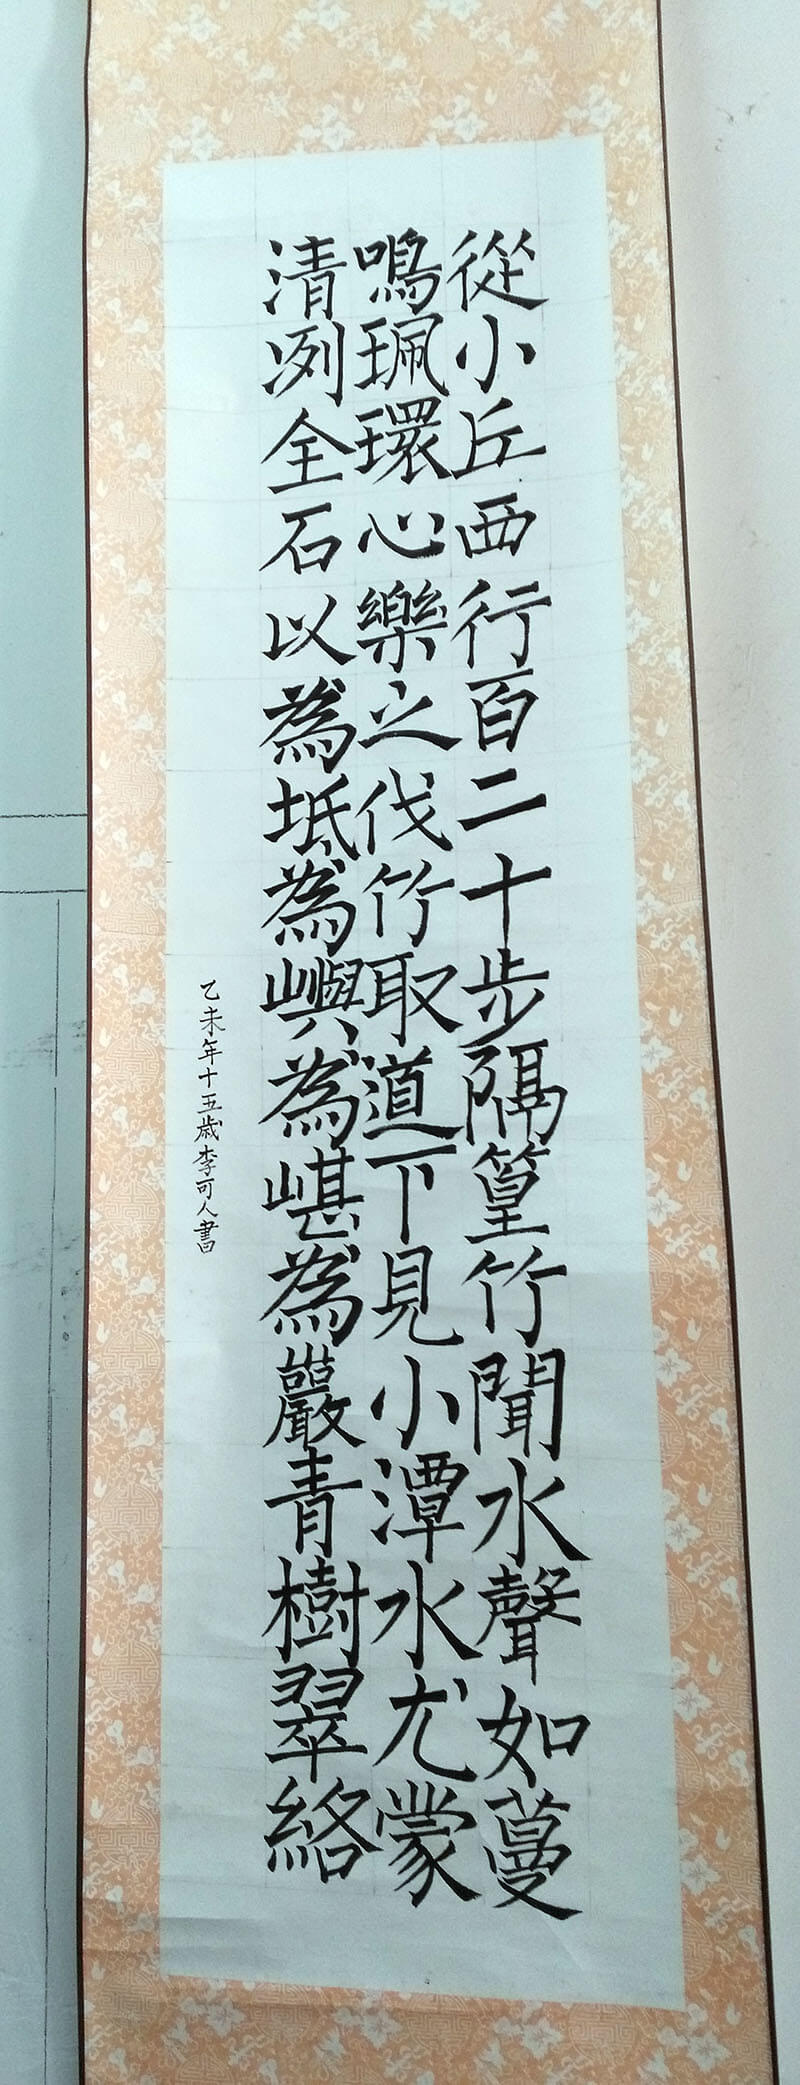 從小丘西行百二十步隔篁竹聞水聲如蔓
鳴珮環心樂之伐竹取道下見小潭水尤蒙
清冽全石以為坻為嶼為嵁為巖青樹翠絡
乙未年十五歲李可人書